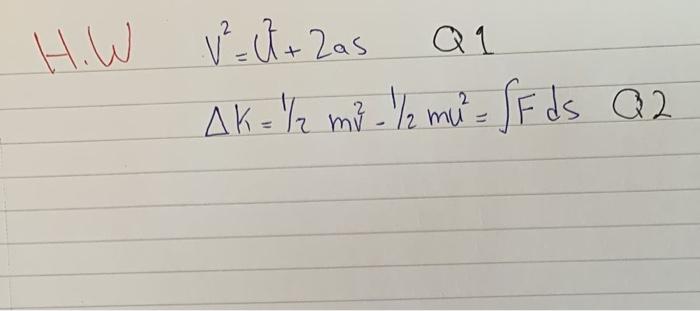 H.W V² = U² + 2as Q1
ΔK = 1/2 mv² - 1/2 mu² = ∫F ds Q2